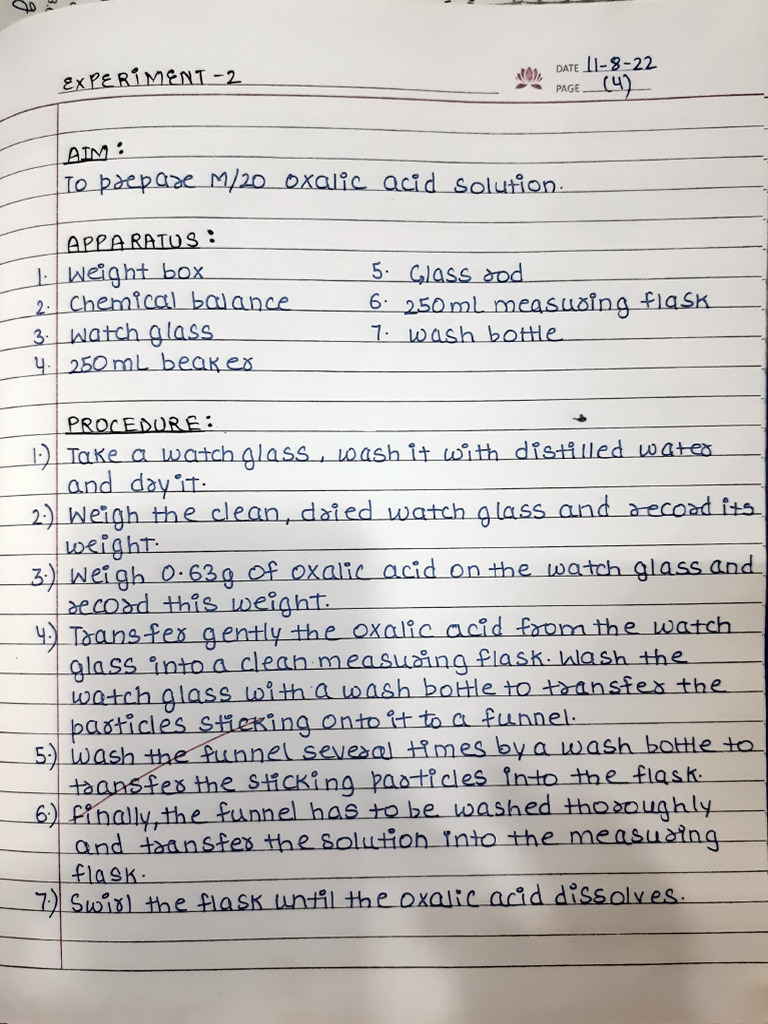 EXPERIMENT-2
DATE 11-8-22
PAGE (4)
AIM:
To prepare M/20 oxalic acid solution.
APPARATUS:
1. Weight box
2. Chemical balance
3. Watch glass
4. 250mL beaker
5. Glass rod
6. 250mL measuring flask
7. Wash bottle
PROCEDURE:
1.) Take a watch glass, wash it with distilled water
and dry it.
2.) Weigh the clean, dried watch glass and record its
weight.
3.) Weigh 0.63g of oxalic acid on the watch glass and
record this weight.
4.) Transfer gently the oxalic acid from the watch
glass into a clean measuring flask. Wash the
watch glass with a wash bottle to transfer the
particles sticking onto it to a funnel.
5.) Wash the funnel several times by a wash bottle to
transfer the sticking particles into the flask.
6.) Finally, the funnel has to be washed thoroughly
and transfer the solution into the measuring
flask.
7.) Swirl the flask until the oxalic acid dissolves.